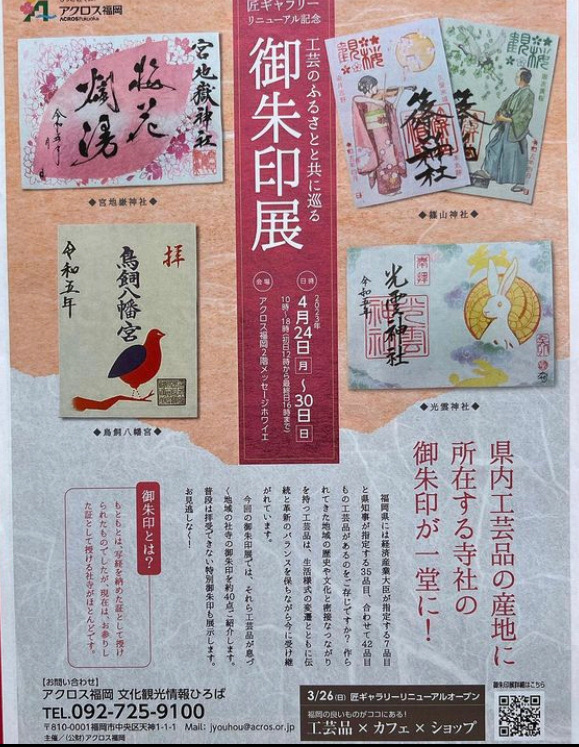 アクロス福岡
ACROS Fukuoka
匠ギャラリー
リニューアル記念
工芸のふるさとと共に巡る
御朱印展
日時
2023年
4月24日(月)～30日(日)
10時～18時(初日12時から最終日16時まで)
会場
アクロス福岡2階メッセージホワイエ
宮地嶽神社
梅花
令和五年
◆宮地嶽神社◆
観桜
観桜
篠山神社
◆篠山神社◆
拝
鳥飼八幡宮
令和五年
◆鳥飼八幡宮◆
奉拝
光雲神社
令和五年
◆光雲神社◆
県内工芸品の産地に
所在する寺社の
御朱印が一堂に！
福岡県には経済産業大臣が指定する7品目
と県知事が指定する35品目、合わせて42品目
もの工芸品があるのをご存じですか？作ら
れてきた地域の歴史や文化と密接なつながり
を持つ工芸品は、生活様式の変遷とともに伝
統と革新のバランスを保ちながら今に受け継
がれています。
今回の御朱印展では、それら工芸品が息づ
く地域の社寺の御朱印を約40点ご紹介します。
普段は拝受できない特別御朱印も展示します。
お見逃しなく！
御朱印とは？
もともとは、写経を納めた証として授け
られたものでしたが、現在は、お参りし
た証として授ける社寺がほとんどです。
【お問い合わせ】
アクロス福岡 文化観光情報ひろば
TEL.092-725-9100
〒810-0001福岡市中央区天神1-1-1 Mail: jyouhou@acros.or.jp
主催／(公財)アクロス福岡
3/26(日) 匠ギャラリーリニューアルオープン
福岡の良いものがココにある！
工芸品×カフェ×ショップ
御朱印展詳細はこちら